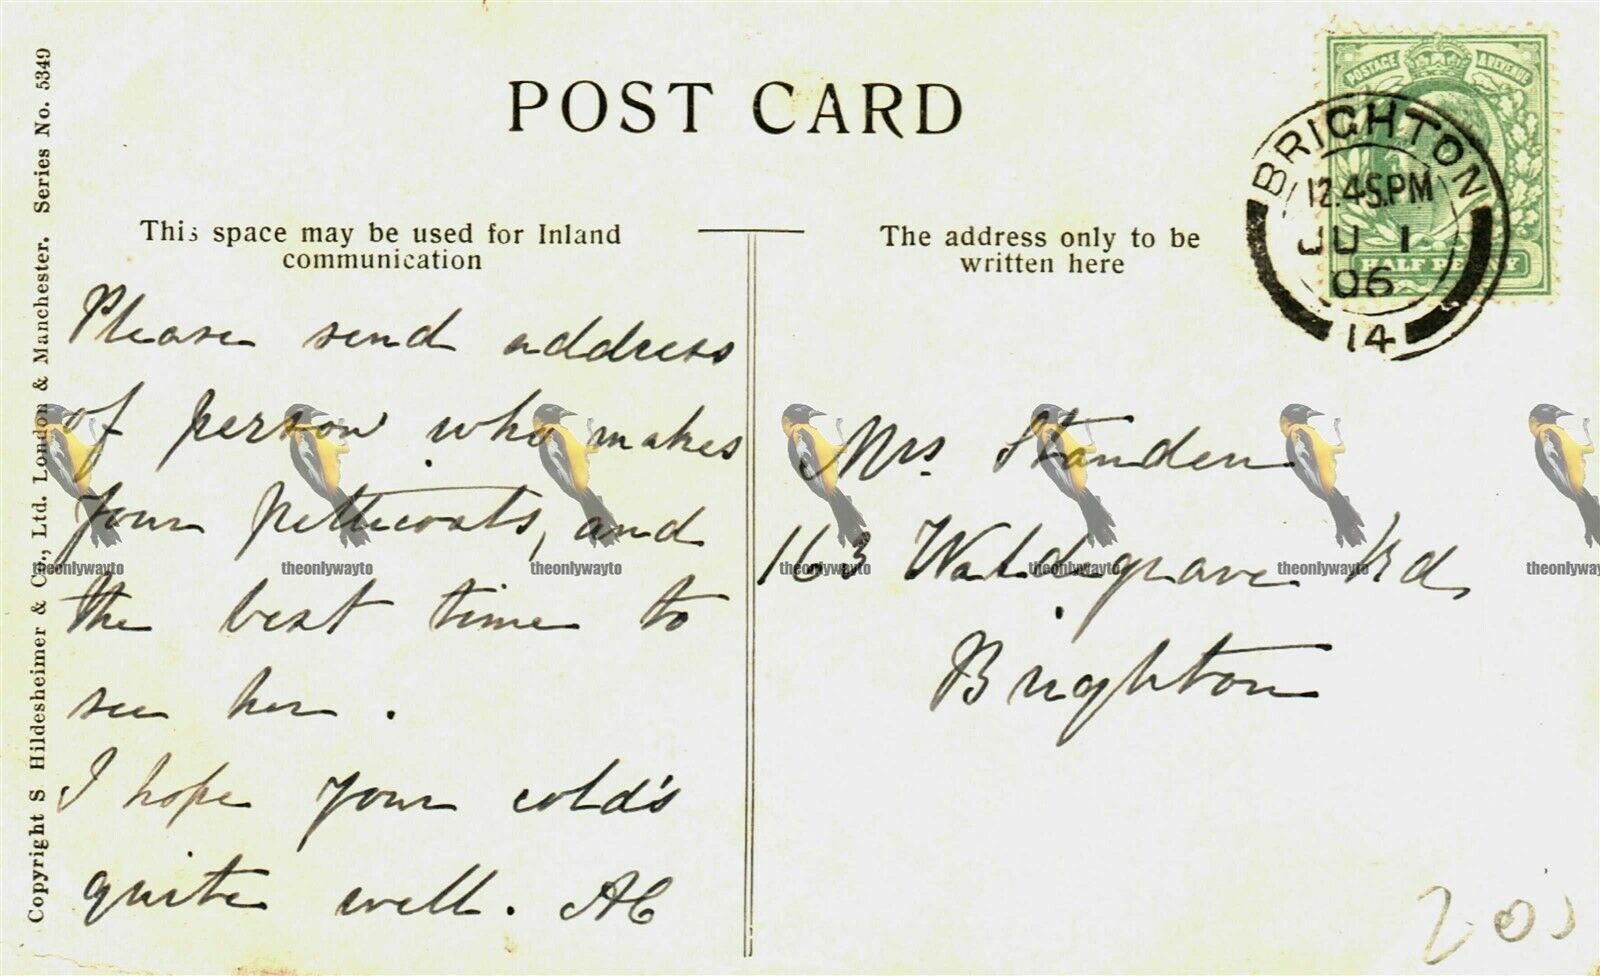 POST CARD
This space may be used for Inland
communication
The address only to be
written here
POSTAGE & REVENUE
HALF PENNY
BRIGHTON
12.45.PM
JU 1
06
14
Please send address
of person who makes
your petticoats, and
the best time to
see her.
I hope your cold's
quite well. AC
Mrs Standen
163 Waldegrave Rd,
Brighton
Copyright S Hildesheimer & Co., Ltd. London & Manchester. Series No. 5349
theonlywayto theonlywayto theonlywayto theonlywayto theonlywayto theonlywayto theonlywayto